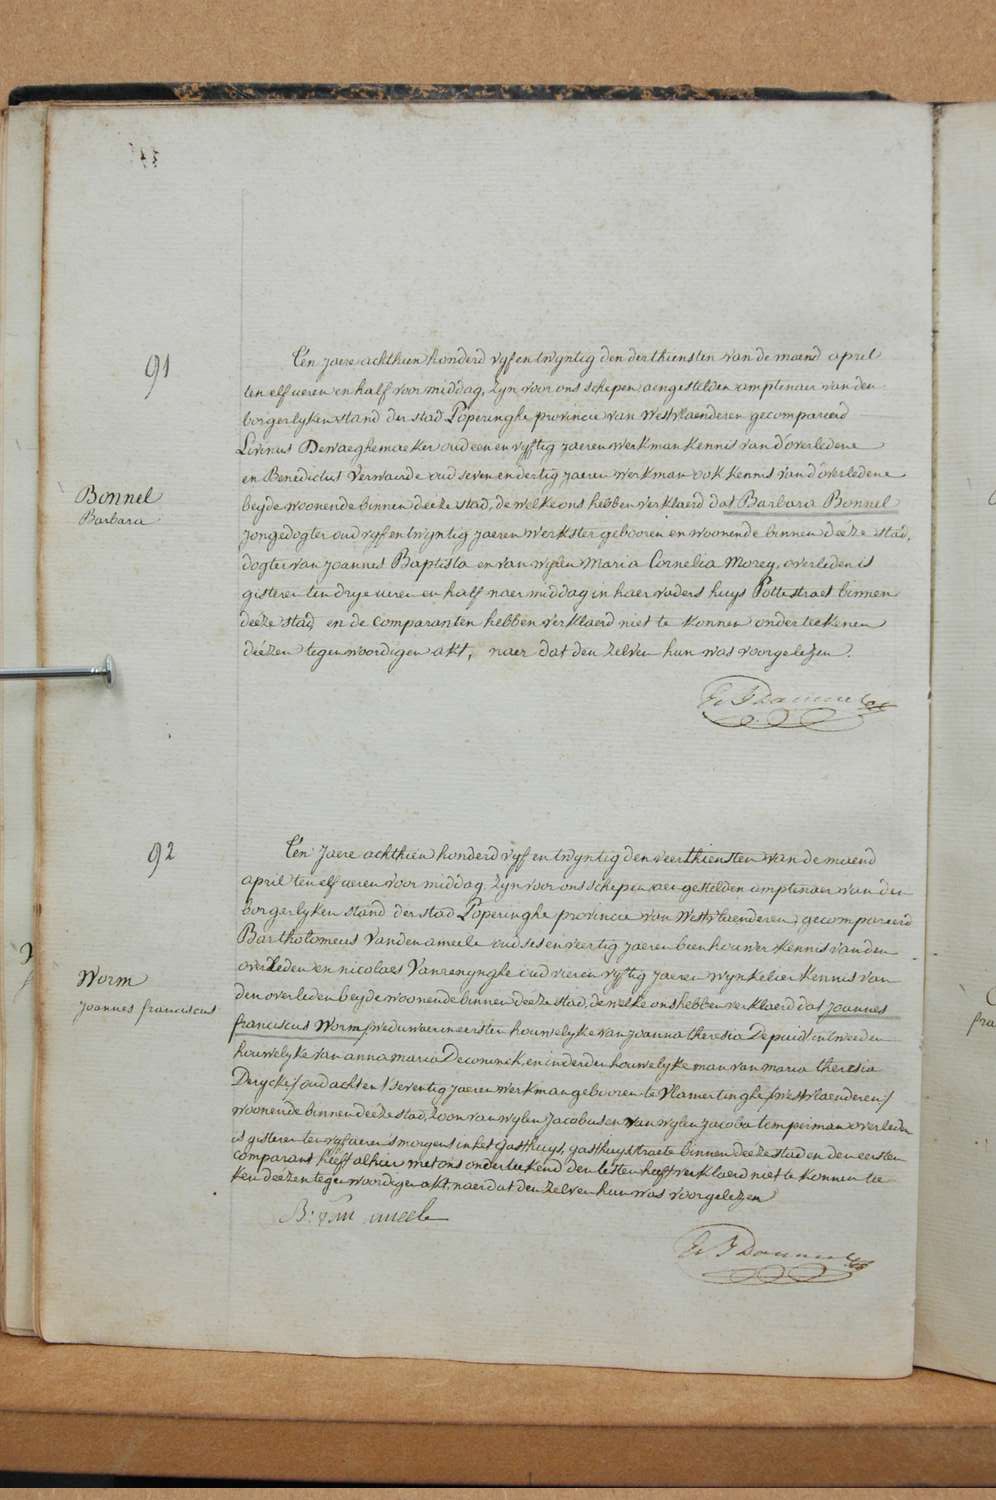 91
Een jaere achthien honderd vyf en twyntig den derthiensten van de maend april
ten elf ueren en half voor middag, zyn voor ons schepen aengestelden amptenaer van den
borgerlyken stand der stad Poperinghe provincie van Westvlaenderen gecompareerd
Livinus Dewaeghemaeker oud een en vyftig jaeren werkman kennis van d'overledene
en Benedictus Verwaerde oud seven en dertig jaeren werkman ook kennis van d'overledene
Bonnel
Barbara
beyde woonende binnen deéze stad, de welke ons hebben verklaerd dat Barbara Bonnel
jongedogter oud vyf en twyntig jaeren werkster gebooren en woonende binnen deéze stad,
dogter van Joannes Baptista en van wylen Maria Cornelia Morey, overleden is
gisteren ten drye ueren en half naer middag in haer vaders huys Pottestraet binnen
deéze stad en de comparanten hebben verklaerd niet te konnen onderteekenen
deézen tegenwoordigen akt, naer dat den zelven hun was voorgelezen.
92
Een Jaere achthien honderd vyf en twyntig den veerthiensten van de maend
april ten elf ueren voor middag, zyn voor ons schepen aengestelden amptenaer van den
borgerlyken stand der stad Poperinghe provincie van Westvlaenderen, gecompareerd
Bartholomeus Vandenameele oud ses en veertig jaeren beenhouwer kennis van den
overleden en nicolaes Vanrenynghe oud vier en vyftig jaeren wynkelier kennis van
Worm
Joannes franciscus
den overleden beyde woonende binnen deéze stad, de welke ons hebben verklaerd dat Joannes
franciscus Worm, weduwaer in eersten houwelyke van Joanna theresia Depuidt in tweeden
houwelyke van anna maria Deconinck, en in derden houwelyke man van maria theresia
Derycke/ oud acht en seventig jaeren werkman gebooren te Vlamertinghe/westvlaenderen/
woonende binnen deéze stad, zoon van wylen Jacobus en van wylen Jacoba temperman overleden
is gisteren ten vyf ueren s'morgens in het Gasthuys, gasthuystraete binnen deéze stad en den eersten
comparant heeft alhier met ons onderteekend den lesten heeft verklaerd niet te konnen tee-
ken deézen tegenwoordigen akt, naer dat den zelven hun was voorgelezen
B: van ameele